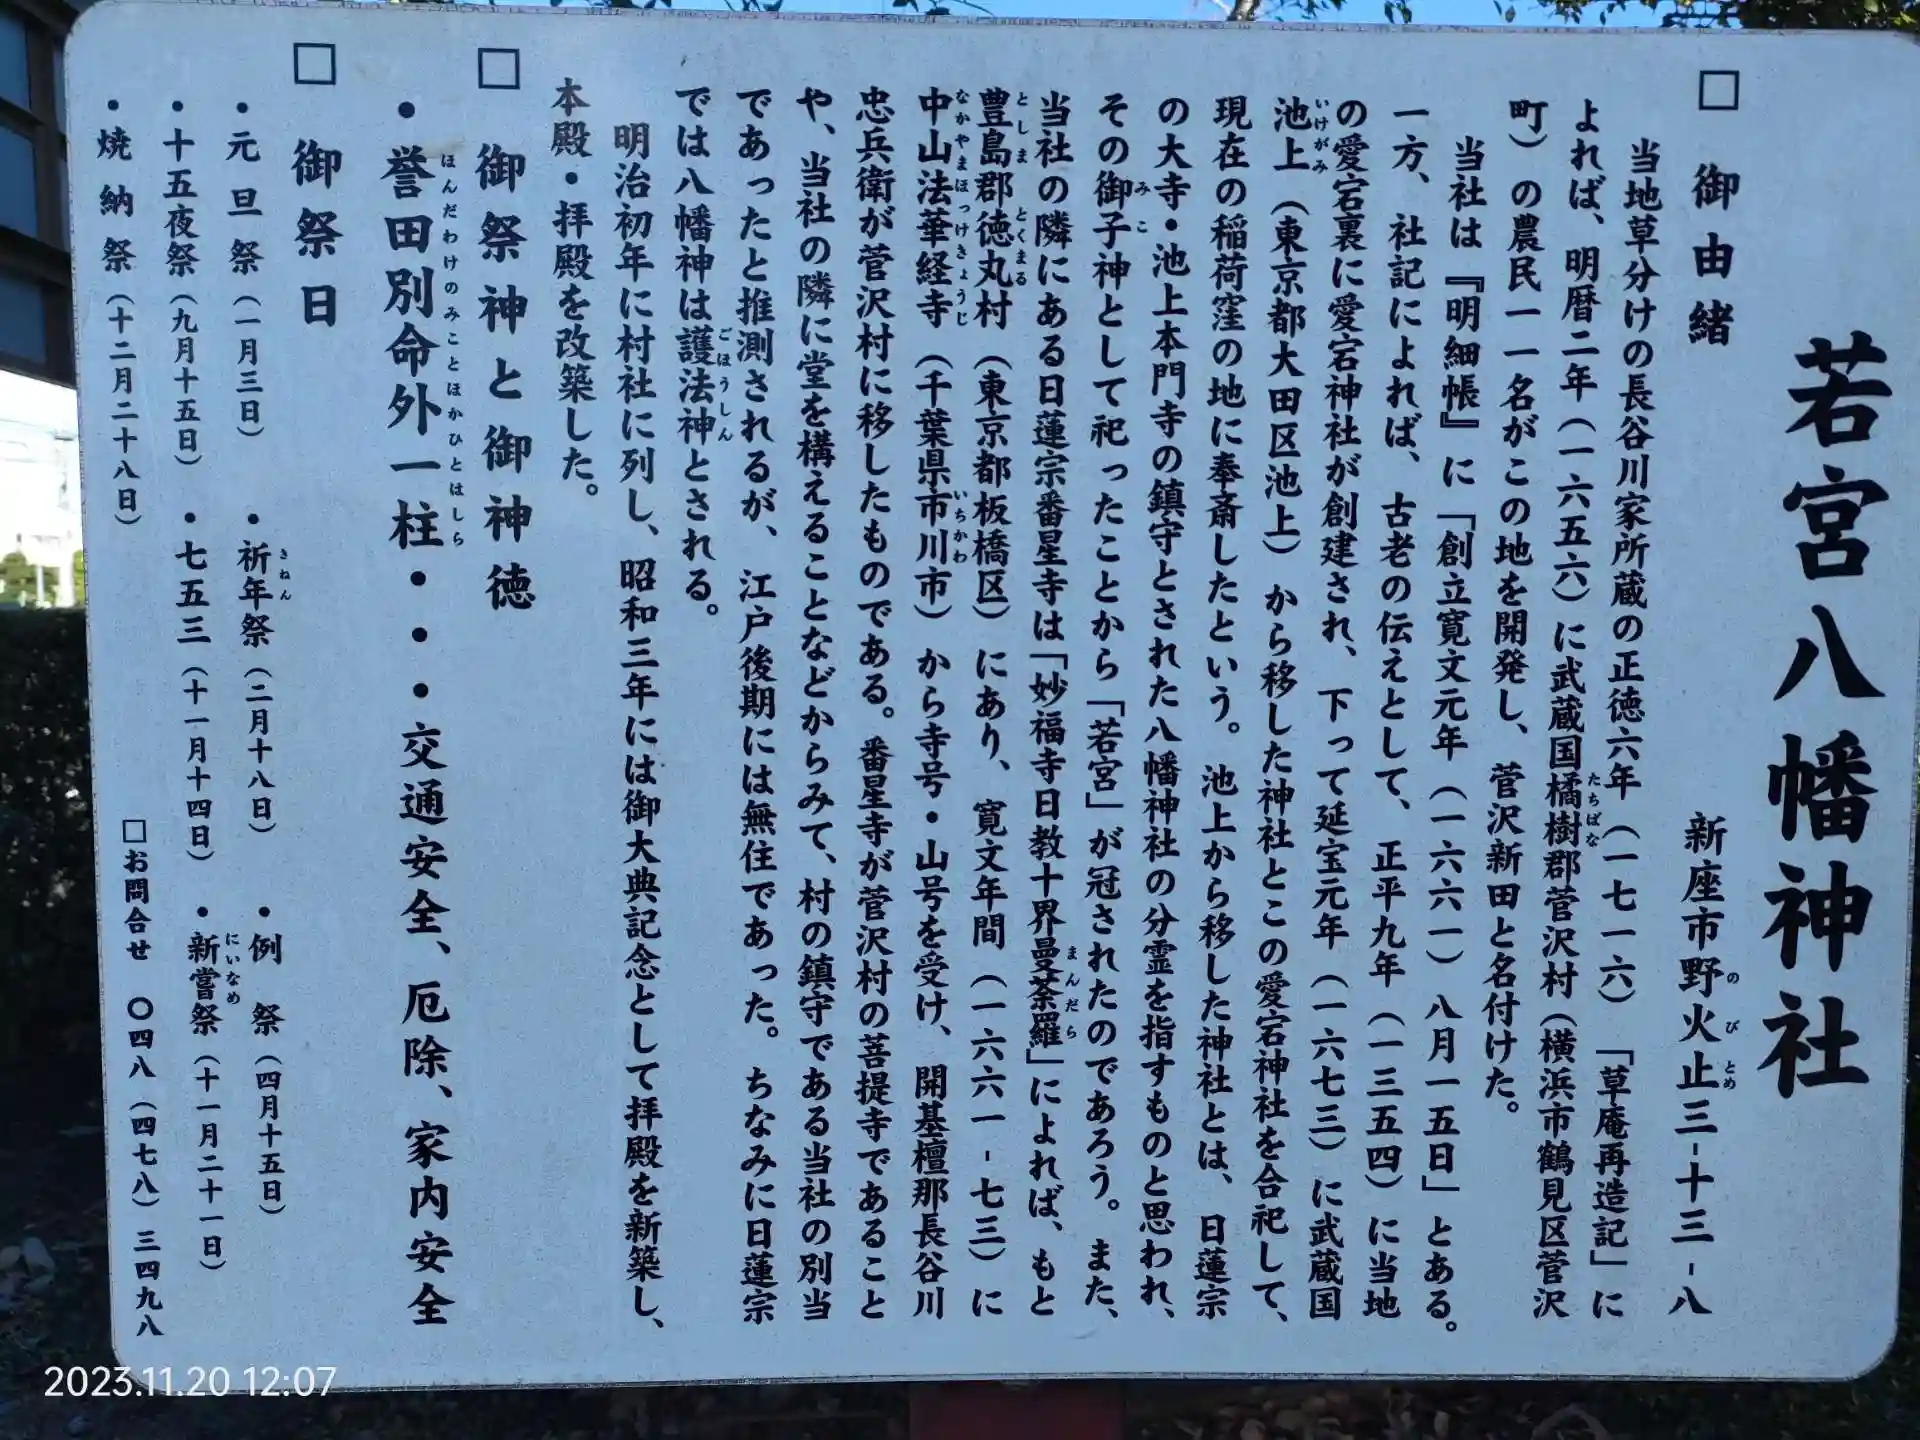 若宮八幡神社
新座市野火止三-十三-八
□ 御由緒
当地草分けの長谷川家所蔵の正徳六年（一七一六）「草庵再造記」に
よれば、明暦二年（一六五六）に武蔵国橘樹郡菅沢村（横浜市鶴見区菅沢
町）の農民一一名がこの地を開発し、菅沢新田と名付けた。
当社は『明細帳』に「創立寛文元年（一六六一）八月一五日」とある。
一方、社記によれば、古老の伝えとして、正平九年（一三五四）に当地
の愛宕裏に愛宕神社が創建され、下って延宝元年（一六七三）に武蔵国
池上（東京都大田区池上）から移した神社とこの愛宕神社を合祀して、
現在の稲荷窪の地に奉斎したという。池上から移した神社とは、日蓮宗
の大寺・池上本門寺の鎮守とされた八幡神社の分霊を指すものと思われ、
その御子神として祀ったことから「若宮」が冠されたのであろう。また、
当社の隣にある日蓮宗番星寺は「妙福寺日教十界曼荼羅」によれば、もと
豊島郡徳丸村（東京都板橋区）にあり、寛文年間（一六六一-七三）に
中山法華経寺（千葉県市川市）から寺号・山号を受け、開基檀那長谷川
忠兵衛が菅沢村に移したものである。番星寺が菅沢村の菩提寺であること
や、当社の隣に堂を構えることなどからみて、村の鎮守である当社の別当
であったと推測されるが、江戸後期には無住であった。ちなみに日蓮宗
では八幡神は護法神とされる。
明治初年に村社に列し、昭和三年には御大典記念として拝殿を新築し、
本殿・拝殿を改築した。
□ 御祭神と御神徳
・誉田別命外一柱・・・交通安全、厄除、家内安全
□ 御祭日
・元旦祭（一月三日） ・祈年祭（二月十八日） ・例祭（四月十五日）
・十五夜祭（九月十五日） ・七五三（十一月十四日） ・新嘗祭（十一月二十一日）
・焼納祭（十二月二十八日）
□お問合せ 〇四八（四七八）三四九八
2023.11.20 12:07